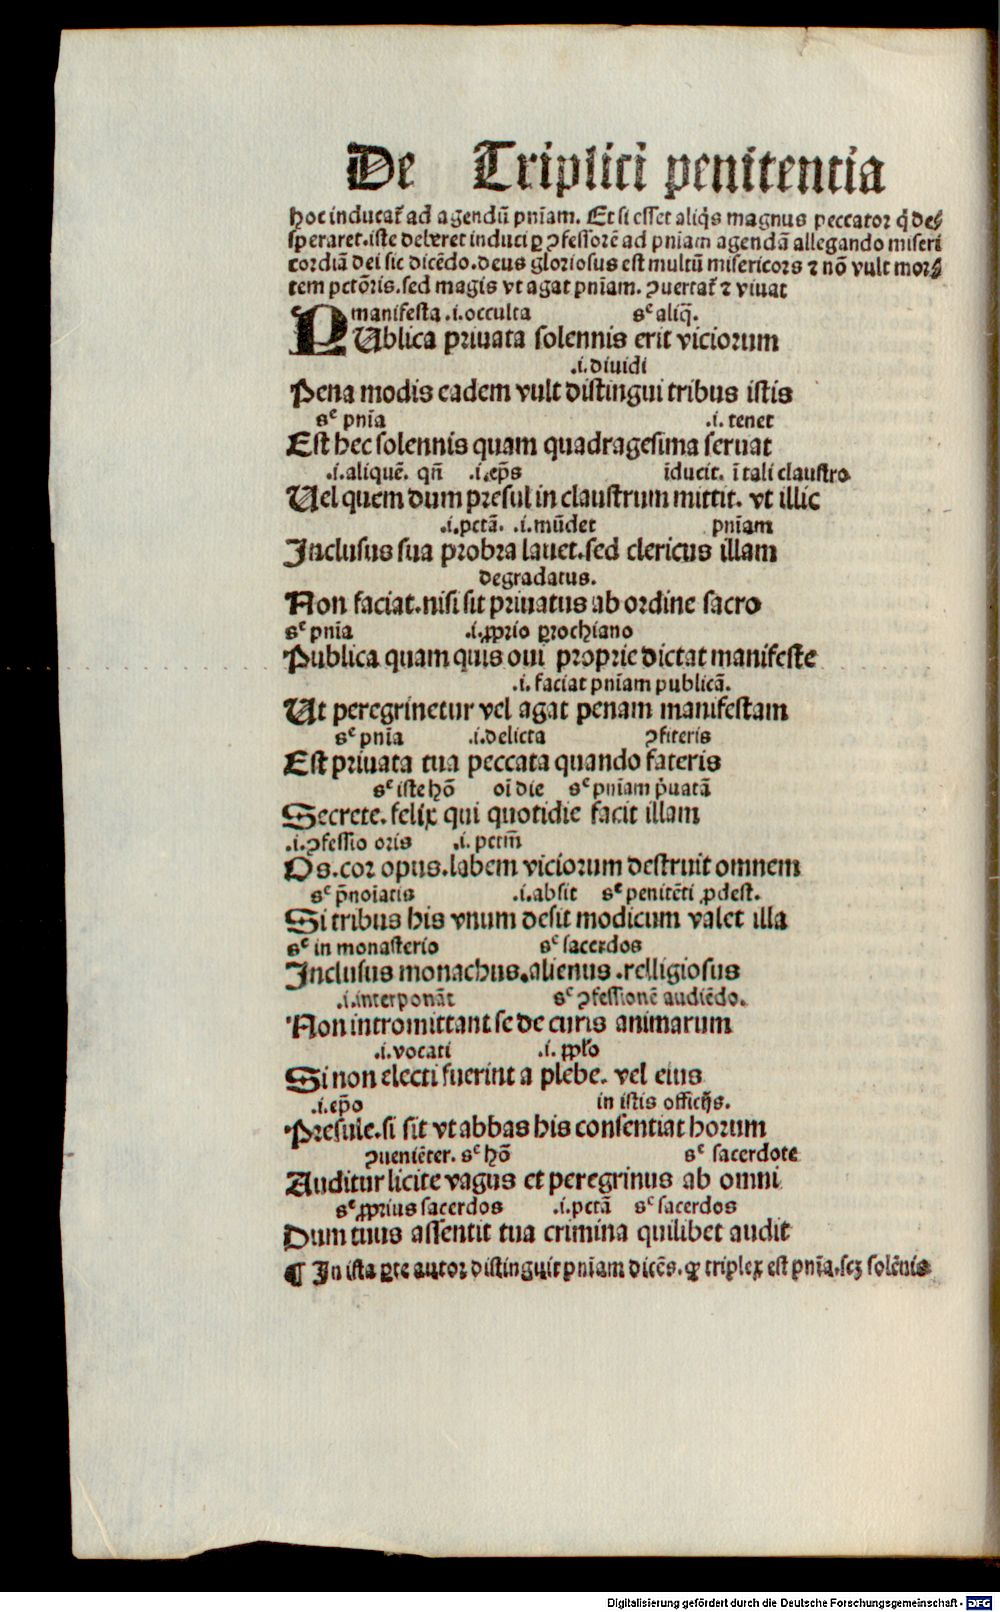 De Triplici penitentia
hoc inducat̃ ad agendū pnīam. Et si esset aliq̄s magnus peccator q̄ de⸗
speraret.iste deberet induci ꝑ ꝯfessorē ad pniam agendā allegando miseri
cordiā dei sic dicēdo.deus gloriosus est multū misericors ⁊ nō vult mor⸗
tem pctōris.sed magis vt agat pnīam. ꝯuertat̃ ⁊ viuat
manifesta .i.occulta sᶜ aliq̄.
PUblica priuata solennis erit viciorum
.i.diuidi
Pena modis eadem vult distingui tribus istis
sᶜ pnīa .i. tenet
Est hec solennis quam quadragesima seruat
.i.aliquē. qn̄ .i.ep̄s īducit. ī tali claustro
Uel quem dum presul in claustrum mittit. vt illic
.i.pctā. .i.mūdet pnīam
Inclusus sua probra lauet.sed clericus illam
degradatus.
Non faciat.nisi sit priuatus ab ordine sacro
sᶜ pnīa .i.ꝓprio ꝑrochiano
Publica quam quis oui proprie dictat manifeste
.i. faciat pnīam publicā.
Ut peregrinetur vel agat penam manifestam
sᶜ pnīa .i.delicta ꝯfiteris
Est priuata tua peccata quando fateris
sᶜ iste hō oī die sᶜ pnīam p̄uatā
Secrete. felix qui quotidie facit illam
.i.ꝯfessio oris .i. pctm̄
Os.cor opus.labem viciorum destruit omnem
sᶜ p̄noīatis .i.absit sᶜ penitēti ꝓdest.
Si tribus his vnum desit modicum valet illa
sᶜ in monasterio sᶜ sacerdos
Inclusus monachus.alienus .relligiosus
.i.interponāt sᶜ ꝯfessionē audiēdo.
Non intromittant se de curis animarum
.i.vocati .i. ꝓpło
Si non electi fuerint a plebe. vel eius
.i.ep̄o in istis officijs.
Presule.si sit vt abbas his consentiat horum
ꝯueniēter. sᶜ hō sᶜ sacerdote
Auditur licite vagus et peregrinus ab omni
sᶜ ꝓprius sacerdos .i.pctā sᶜ sacerdos
Dum tuus assentit tua crimina quilibet audit
¶ In ista ꝑte autor distinguit pnīam dicēs. ꝙ triplex est pnīa.scꝫ solēnis
Digitalisierung gefördert durch die Deutsche Forschungsgemeinschaft - DFG